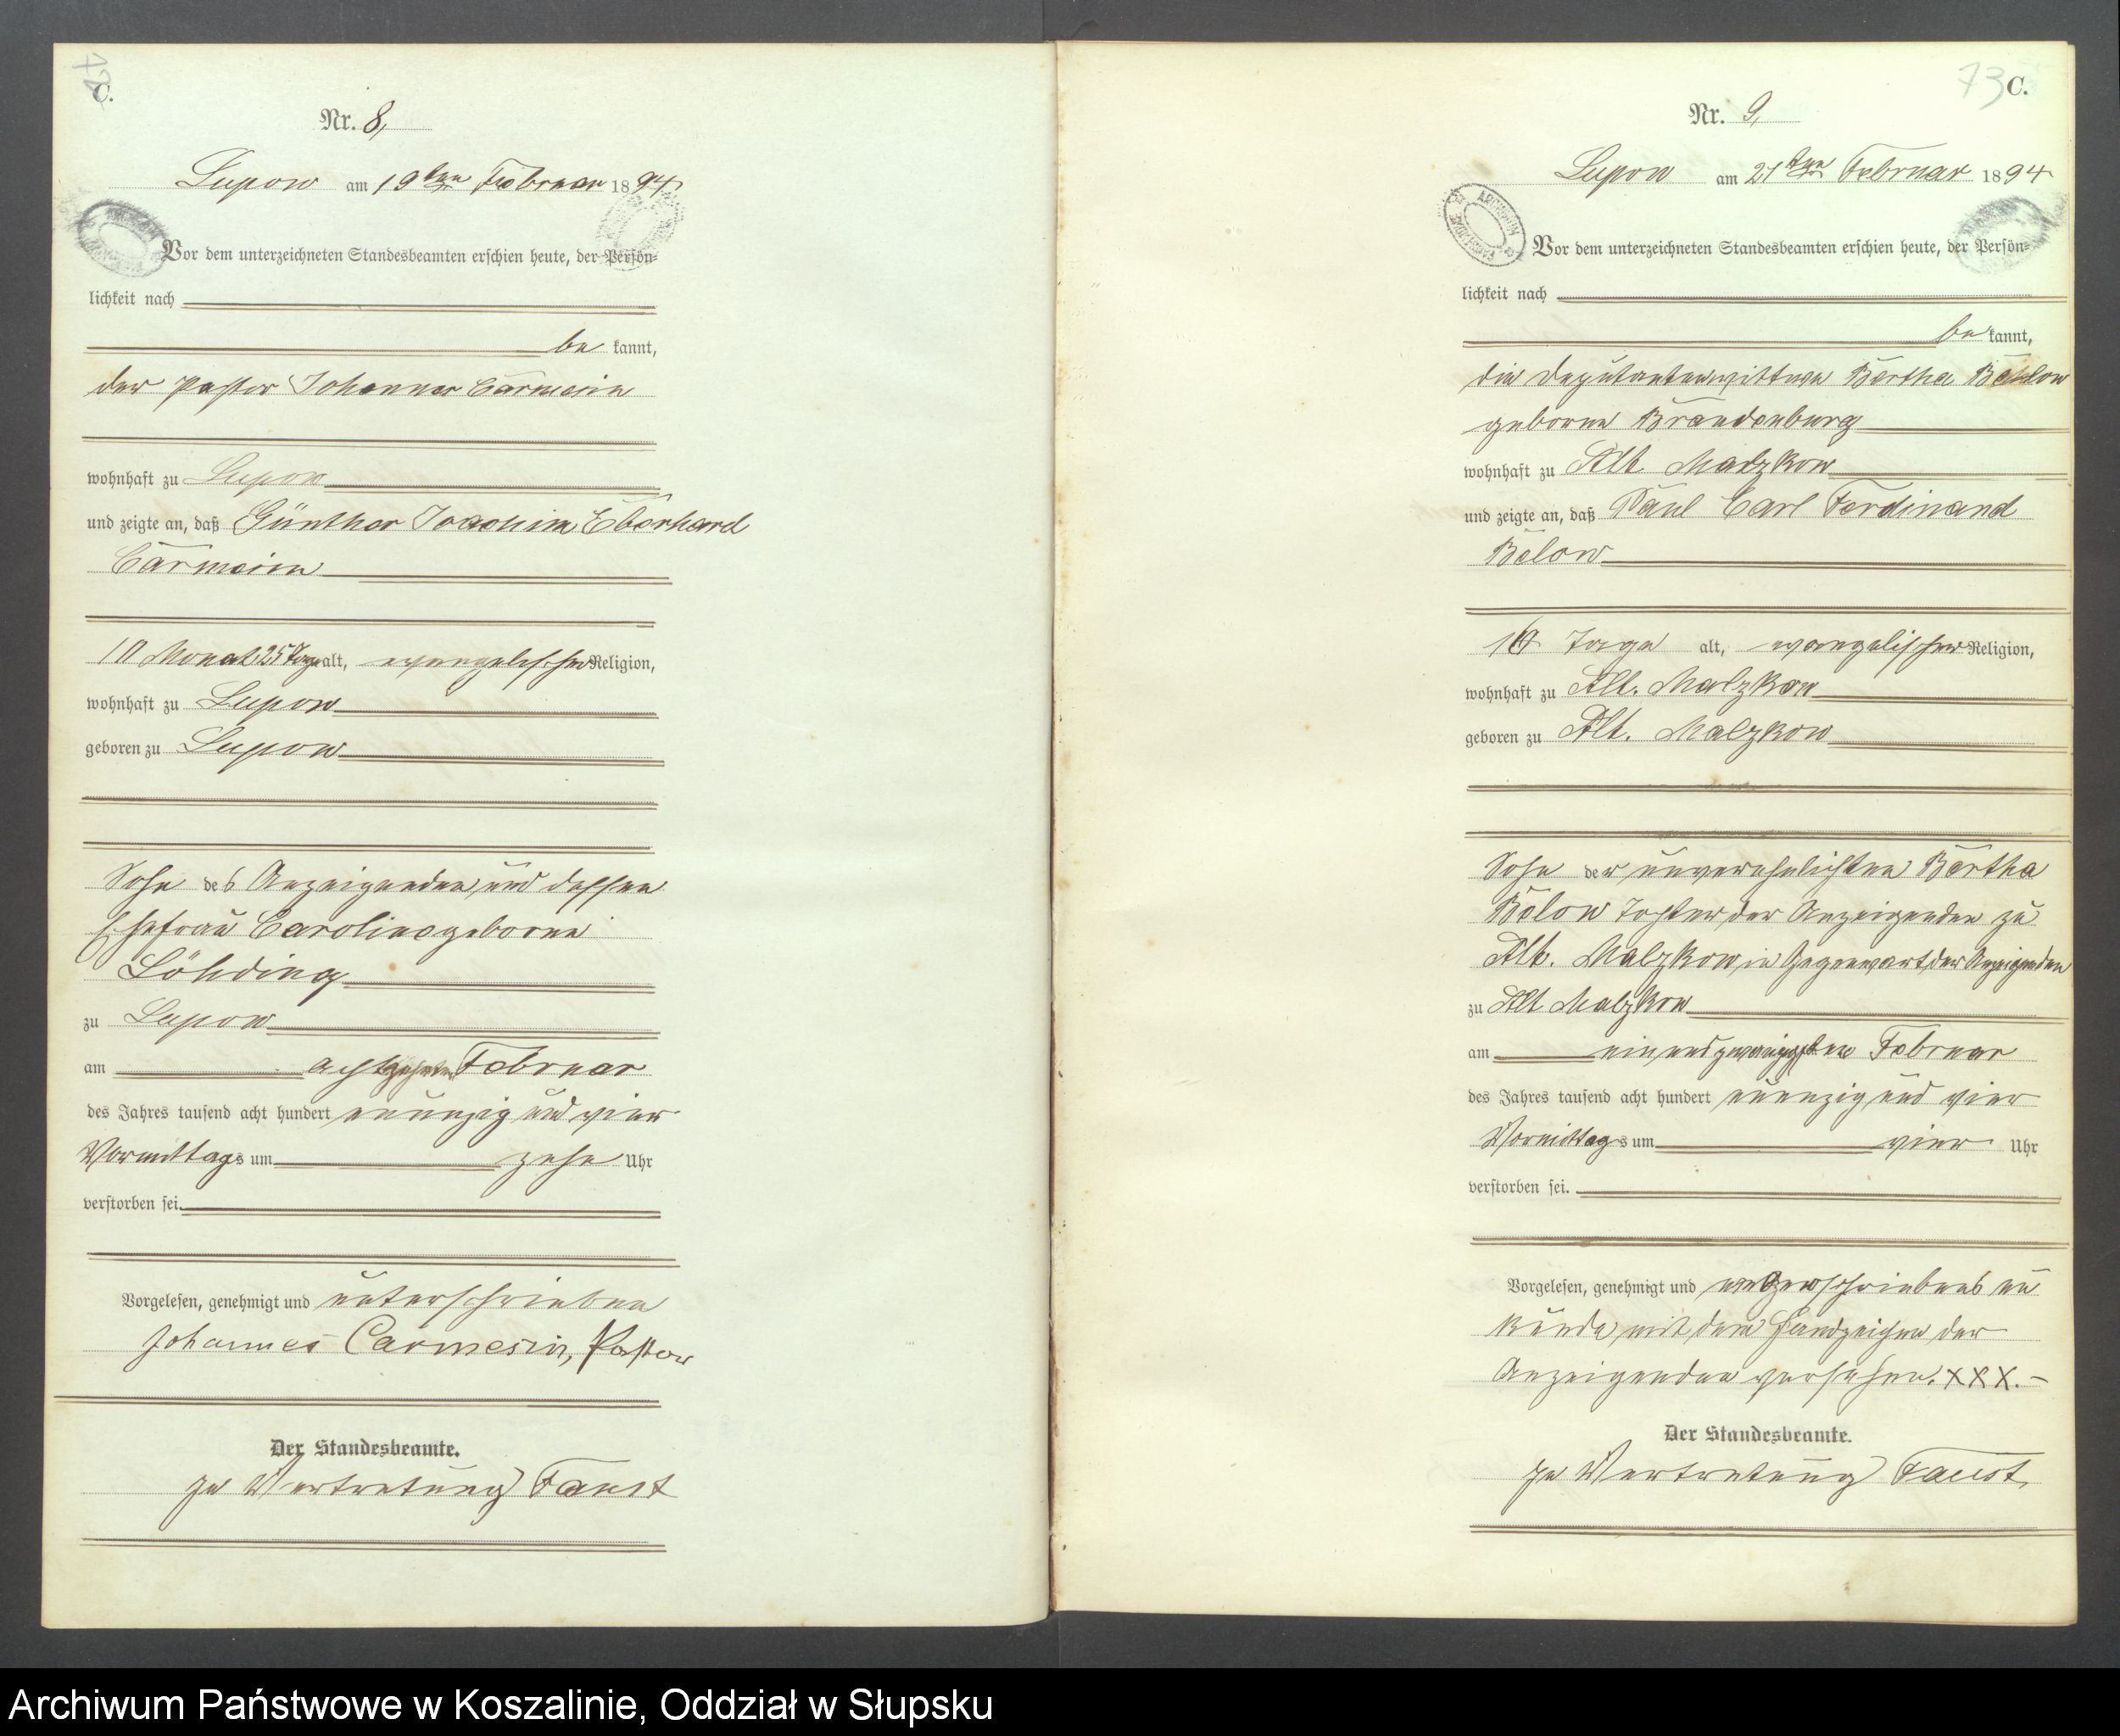 C.
Nr. 8,
Lupow am 19ten Februar 1894.
Vor dem unterzeichneten Standesbeamten erschien heute, der Persön-
lichkeit nach
be kannt,
der Pastor Johannes Carmesin
wohnhaft zu Lupow
und zeigte an, daß Günther Joachim Eberhard
Carmesin
10 Monat 25 Tage alt, evangelischer Religion,
wohnhaft zu Lupow
geboren zu Lupow
Sohn des Anzeigenden und dessen
Ehefrau Caroline geborne
zu Lupow
am achtzehnten Februar
des Jahres tausend acht hundert neunzig und vier
Vormittags um zehn Uhr
verstorben sei.
Vorgelesen, genehmigt und unterschrieben
Johannes Carmesin, Pastor
Der Standesbeamte.
In Vertretung Faust
73 C.
Nr. 9,
Lupow am 21ten Februar 1894
Vor dem unterzeichneten Standesbeamten erschien heute, der Persön-
lichkeit nach
be kannt,
die Deputantenwittwe Bertha Below
geborne Brandenburg
wohnhaft zu Alt Malzkow
und zeigte an, daß Paul Carl Ferdinand
Below
Tage alt, evangelischer Religion,
wohnhaft zu Alt. Malzkow
geboren zu Alt. Malzkow
Sohn der unverehelichten Bertha
Below Tochter der Anzeigenden zu
Alt. Malzkow, in Gegenwart der Anzeigenden
zu Alt Malzkow
am einundzwanzigsten Februar
des Jahres tausend acht hundert neunzig und vier
Vormittags um vier Uhr
verstorben sei.
Vorgelesen, genehmigt und
kunde mit dem Handzeichen der
Anzeigenden versehen. XXX. –
Der Standesbeamte.
In Vertretung Faust.
Archiwum Państwowe w Koszalinie, Oddział w Słupsku